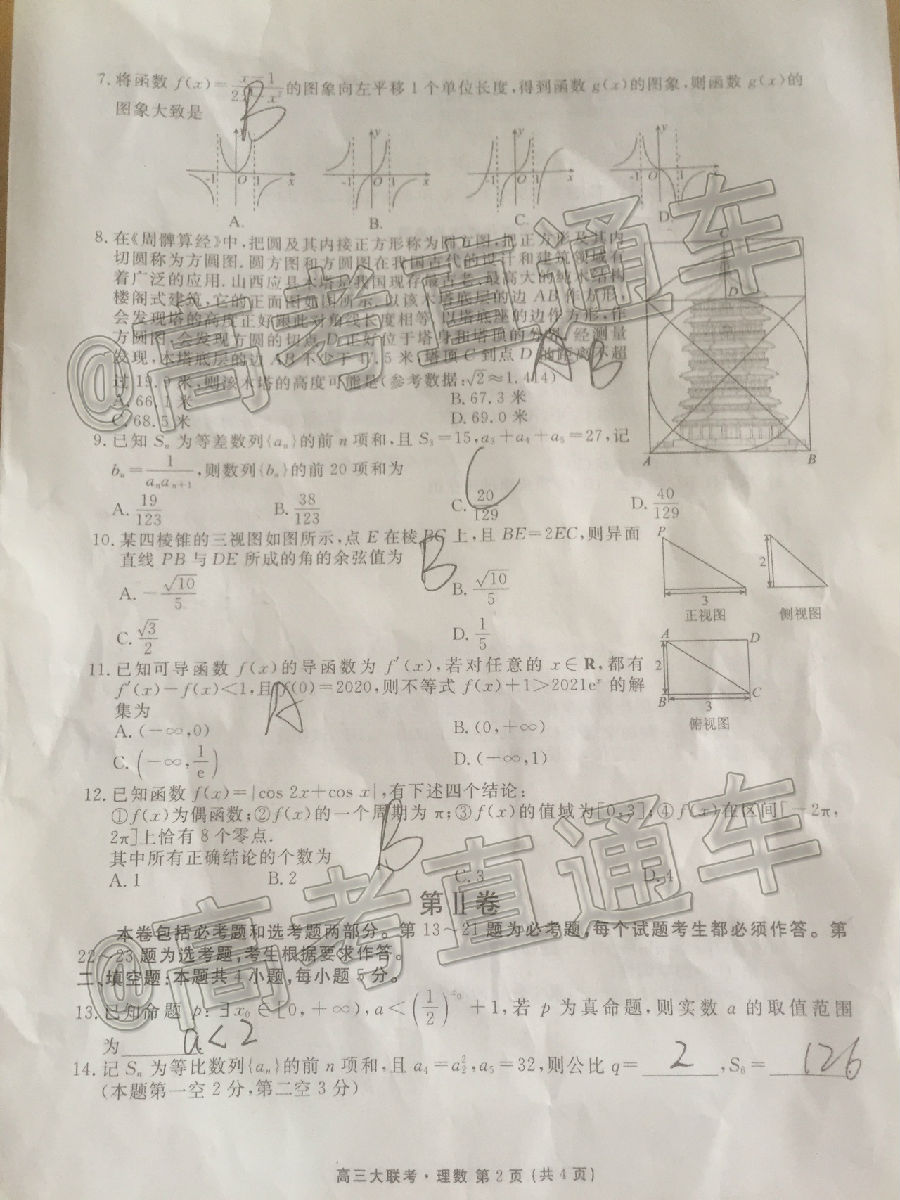 7.将函数 f(x)= 的图象向左平移1个单位长度,得到函数g(x)的图象,则函数g(x)的
图象大致是
B
y y y y
-1 O 1 x -1 O 1 x -1 O 1 x -1 O 1 x
A. B. C. D.
8.在《周髀算经》中,把圆及其内接正方形称为圆方图,把正方形及其内
切圆称为方圆图.圆方图和方圆图在我国古代的设计和建筑领域有
着广泛的应用.山西应县木塔是我国现存最古老、最高大的纯木结构
楼阁式建筑,它的正面图如图所示.以该木塔底层的边AB作方形,
会发现塔的高度正好跟此对角线长度相等.以塔底座的边作方形,作
方圆图,会发现方圆的切点D正好位于塔身和塔顶的分界.经测量
发现,木塔底层的边AB不少于47.5米,塔顶C到点D的距离不超
过19.9米,则该木塔的高度可能是(参考数据:√2≈1.414)
A.66.1米 B.67.3米
C.68.5米 D.69.0米
B
C
D
A B
9.已知Sₙ为等差数列{aₙ}的前n项和,且S₃=15,a₃+a₄+a₅=27,记
bₙ=1/(aₙaₙ₊₁),则数列{bₙ}的前20项和为
A.19/123 B.38/123 C.20/129 D.40/129
C
10.某四棱锥的三视图如图所示,点E在棱BC上,且BE=2EC,则异面
直线PB与DE所成的角的余弦值为
A.-√10/5 B.√10/5
C.√3/2 D.1/5
B
P
3
正视图
2
侧视图
A D
2
B 3 C
俯视图
11.已知可导函数f(x)的导函数为f′(x),若对任意的x∈R,都有
f′(x)-f(x)<1,且f(0)=2020,则不等式f(x)+1>2021eˣ的解
集为
A
A.(-∞,0) B.(0,+∞)
C.(-∞,1/e) D.(-∞,1)
12.已知函数f(x)=|cos 2x+cos x|,有下述四个结论:
①f(x)为偶函数;②f(x)的一个周期为π;③f(x)的值域为[0,3];④f(x)在区间[-2π,
2π]上恰有8个零点.
其中所有正确结论的个数为
B
A.1 B.2 C.3 D.4
第Ⅱ卷
本卷包括必考题和选考题两部分。第13~21题为必考题,每个试题考生都必须作答。第
22~23题为选考题,考生根据要求作答。
二、填空题:本题共4小题,每小题5分。
13.已知命题p:∃x₀∈[0,+∞),a<(1/2)^x₀+1,若p为真命题,则实数a的取值范围
为 a<2
14.记Sₙ为等比数列{aₙ}的前n项和,且a₄=a₂²,a₅=32,则公比q= 2 ,S₆= 126
(本题第一空2分,第二空3分)
高三大联考·理数 第2页(共4页)
@高考直通车
@高考直通车